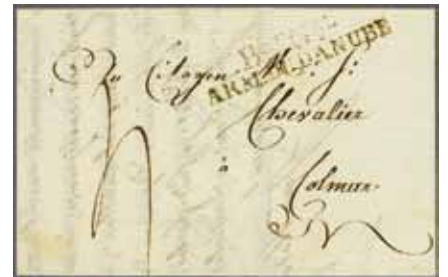 ARMÉE DANUBE
Au Citoyen
Chevalier
à
Colmar